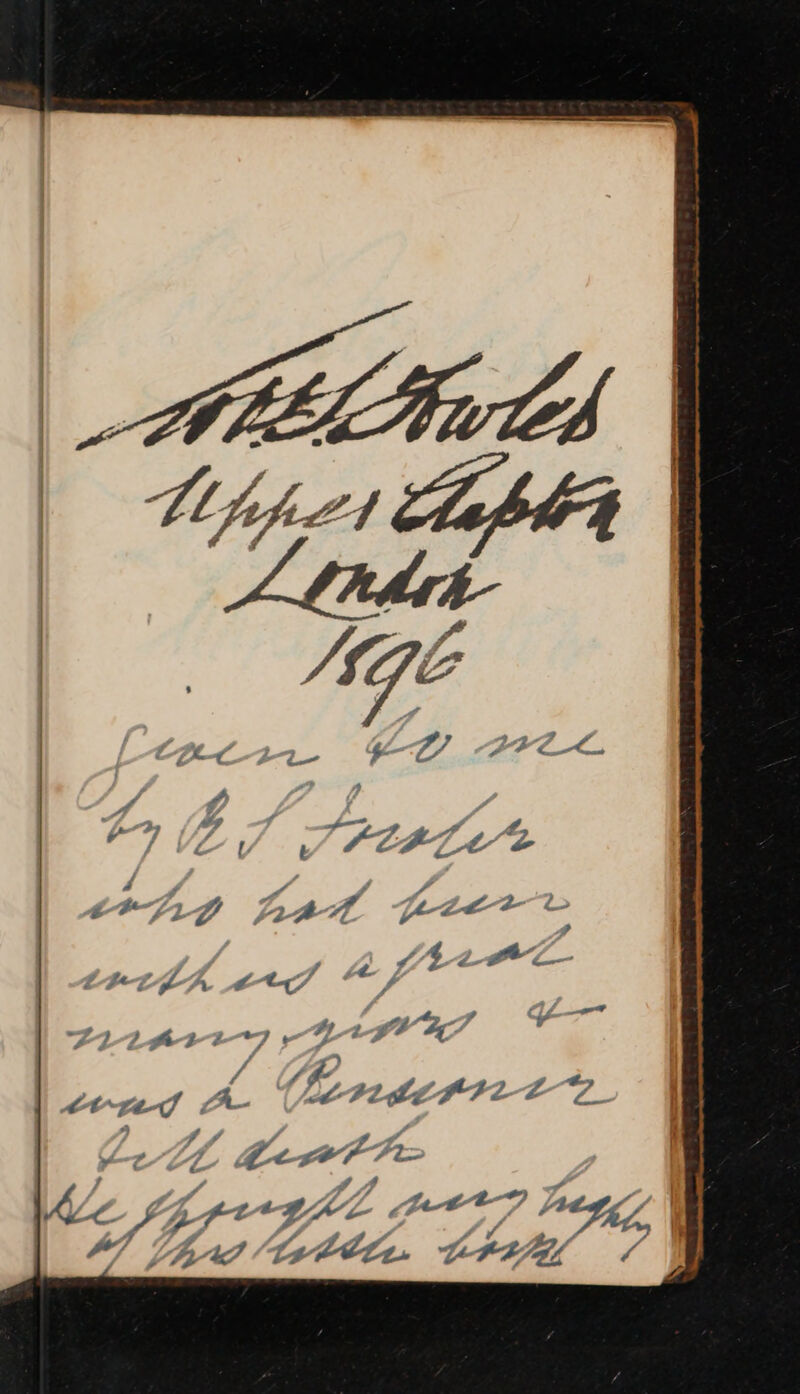 Fowles
Upper Clapton
London
1896
given to me
by R S Fowler
who had been
with us a great
many years &
was a Pensioner
till death
He thought very highly
of this little book